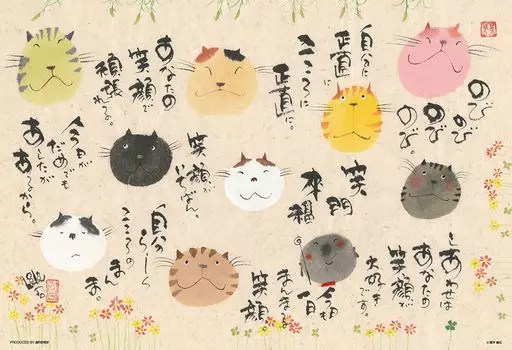 のび
のび
のび。
自分に
正直に
こころに
正直に。
あなたの
笑顔で
頑張れる。
しあわせは
あなたの
笑顔が
大好き
です。
笑門
来福
笑顔が
いちばん。
今日が
だめでも
あしたが
あるから。
今日も
一日
まあるく
笑顔
自分
らしく
こころの
まんま。
PRODUCED BY BEVERLY